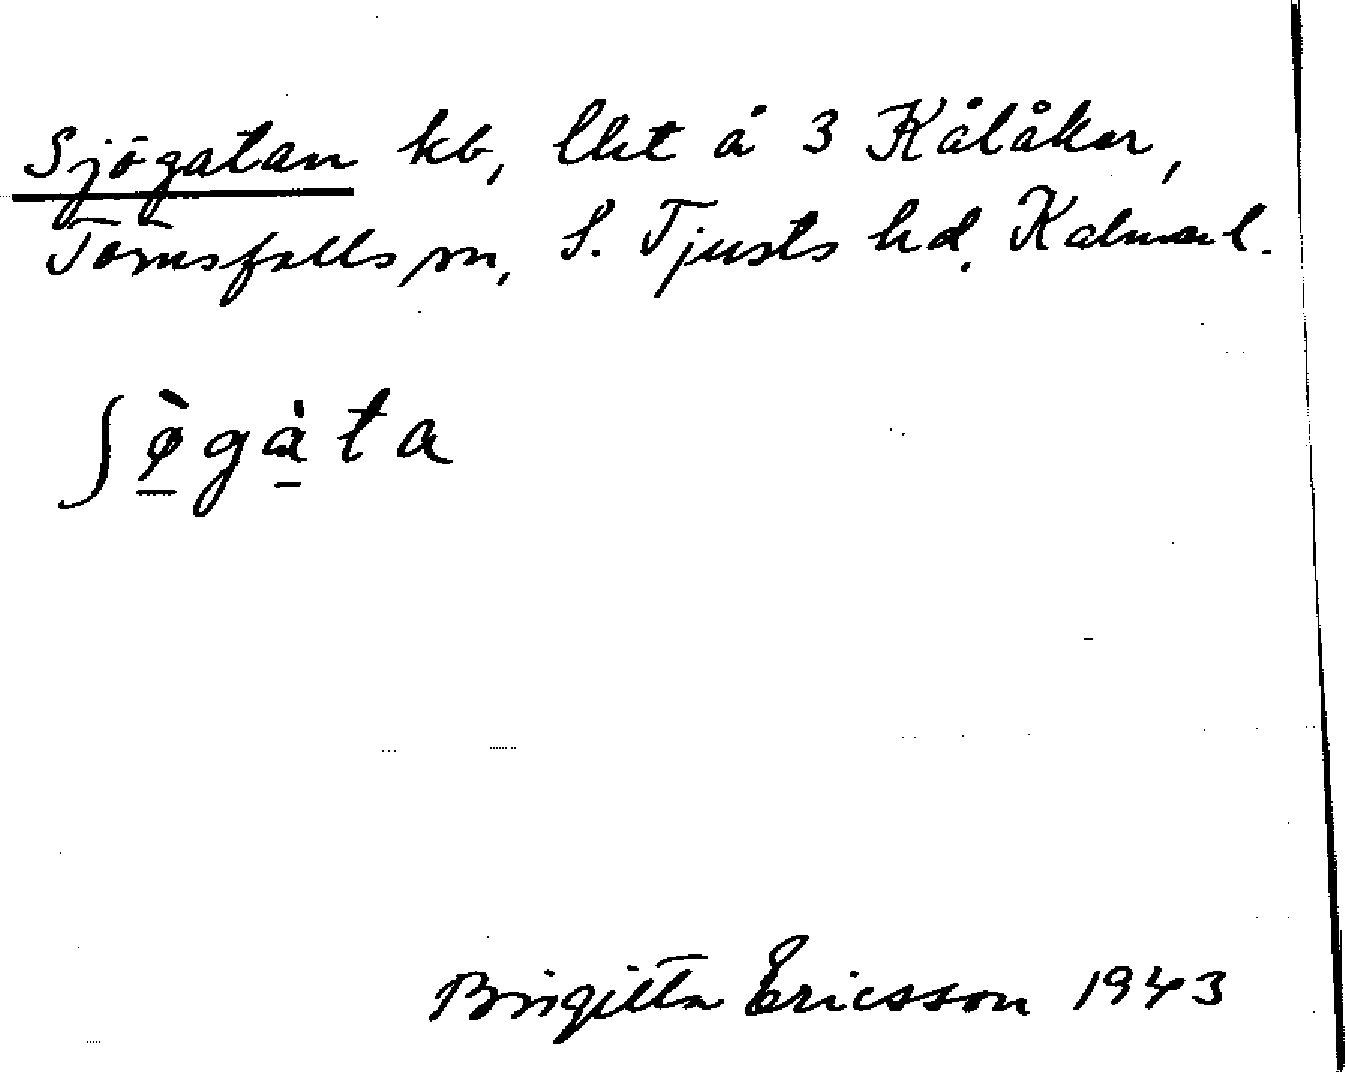 Sjögatan kb, lht å 3 Kålåker,
Törnsfalls sn, S. Tjusts hd, Kalmar l.
ʃø̠̀gà̠ta
Birgitta Ericsson 1943